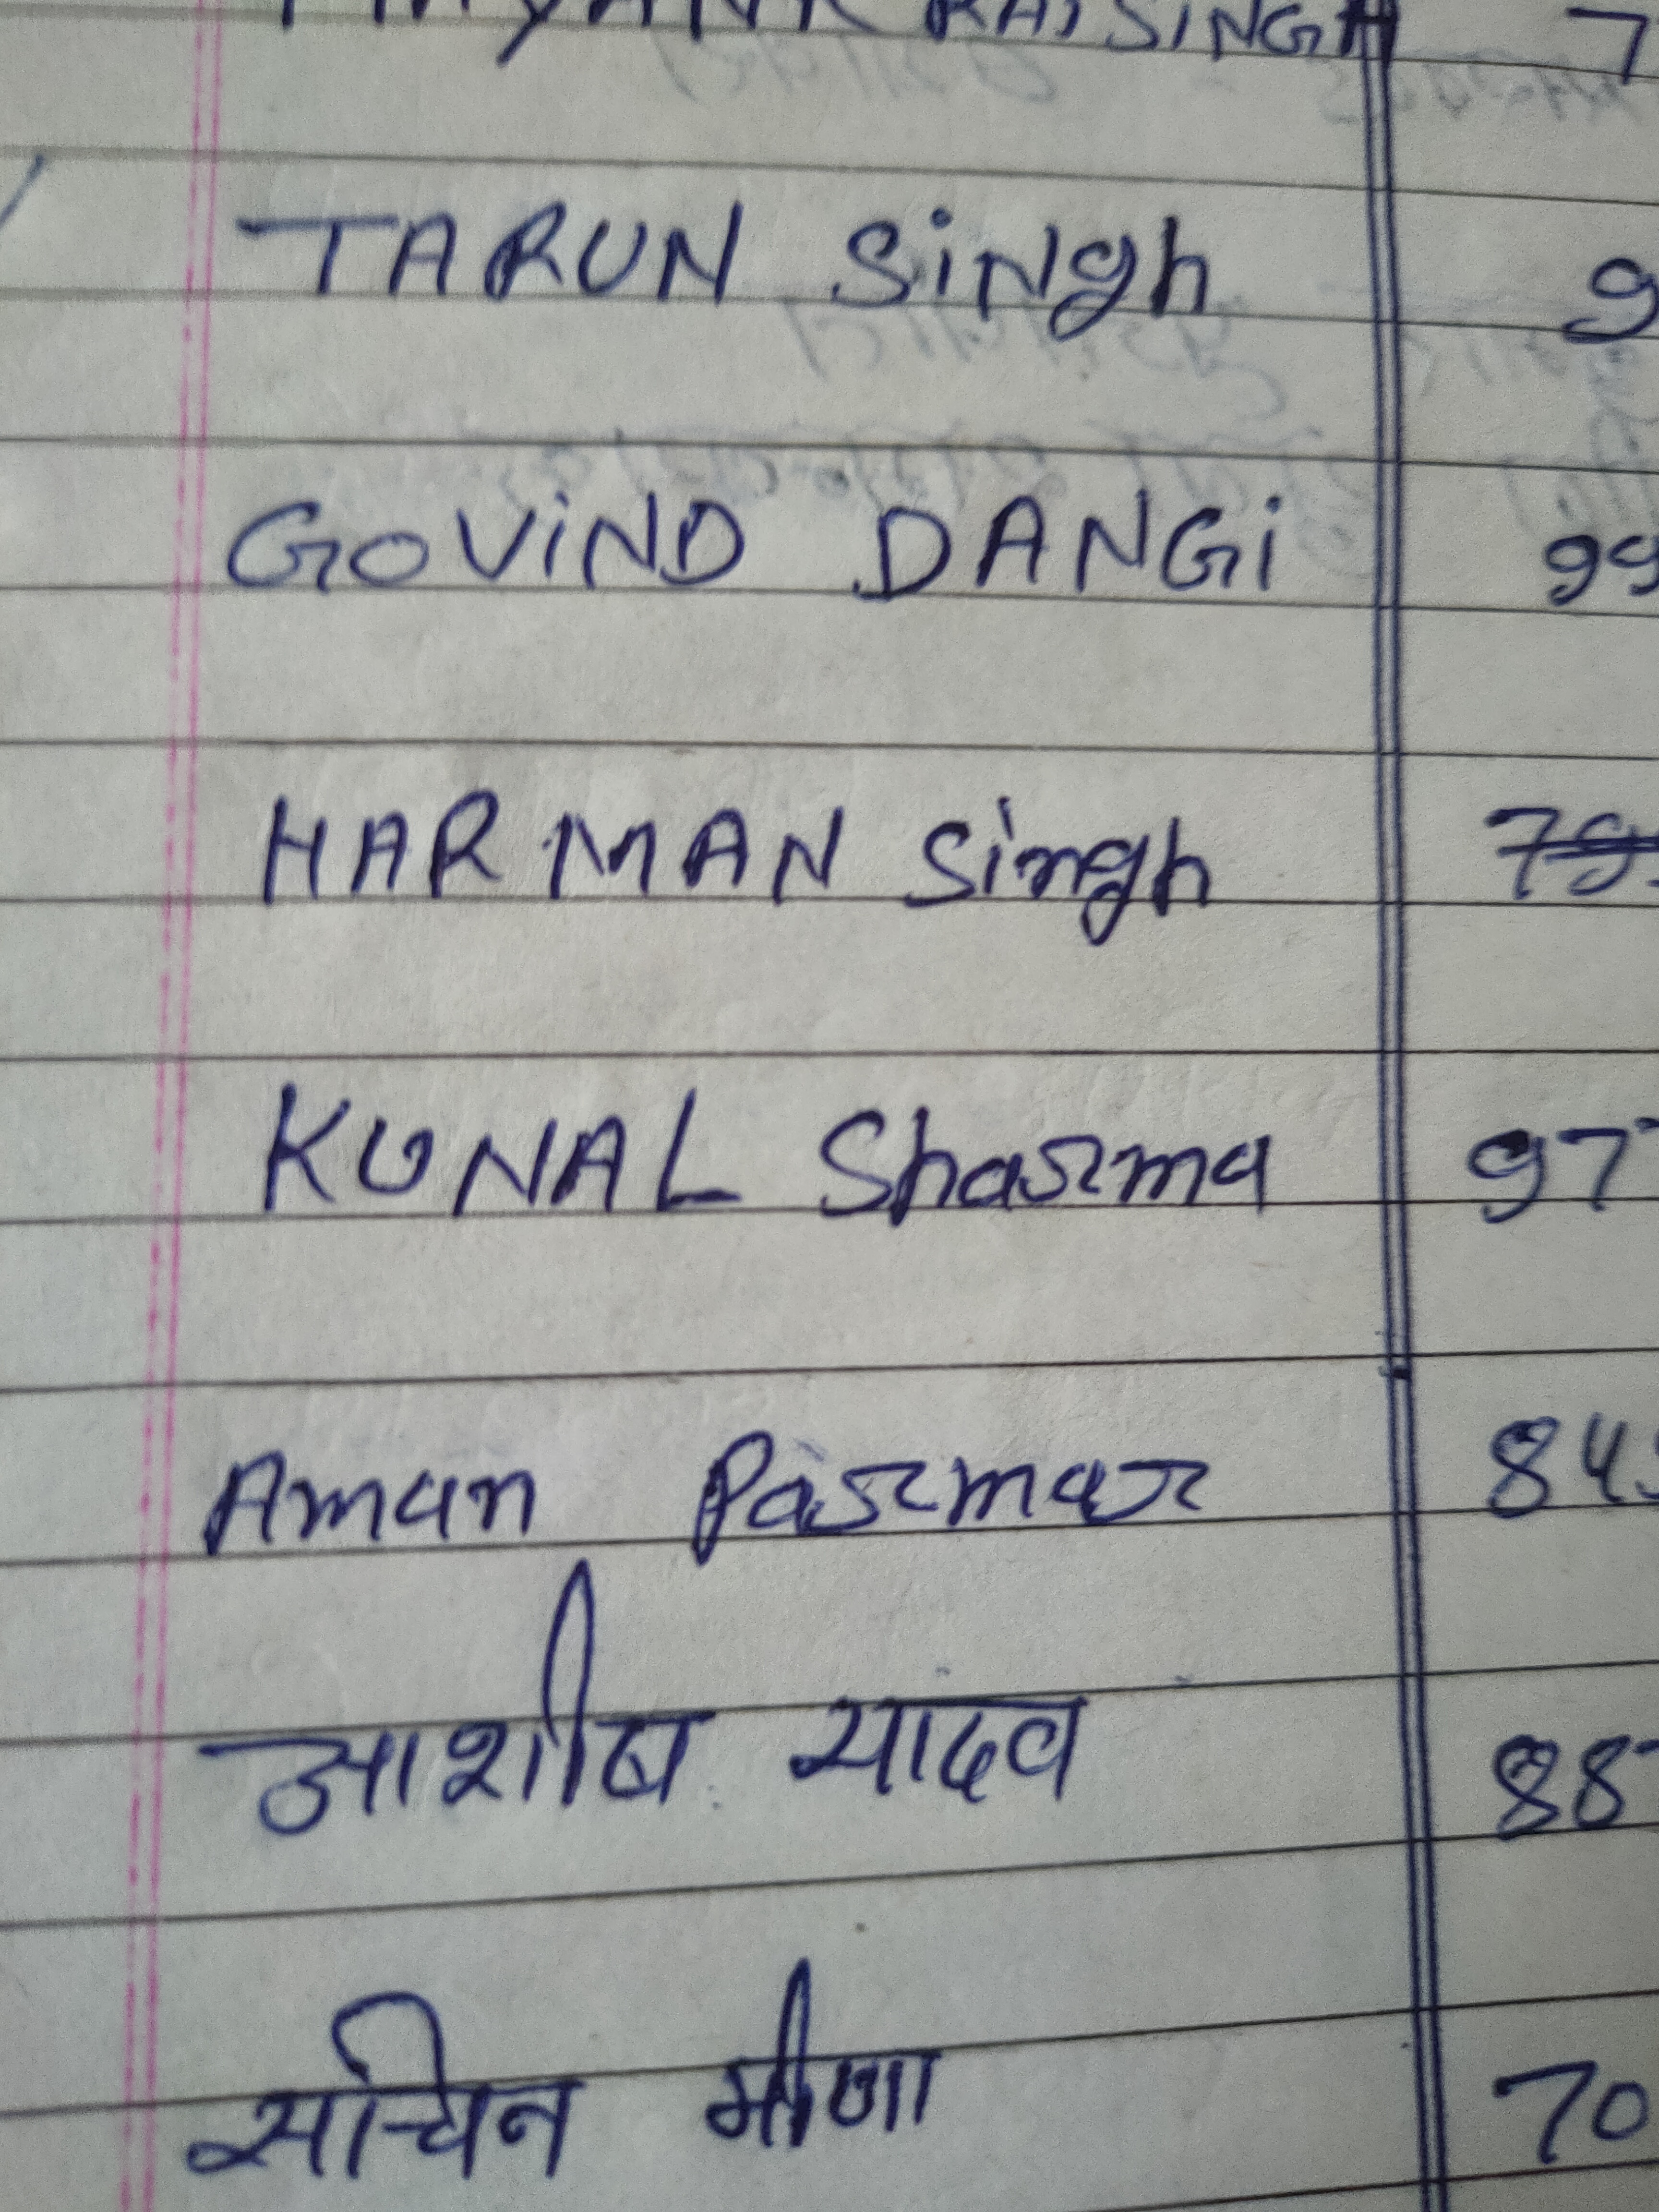 RAJSINGH 7
TARUN SiNgh 9
GOVIND DANGi 99
HARMAN Singh
KUNAL Sharma 97
Aman Parmar 84
आशीष यादव 88
सचिन मीणा 70